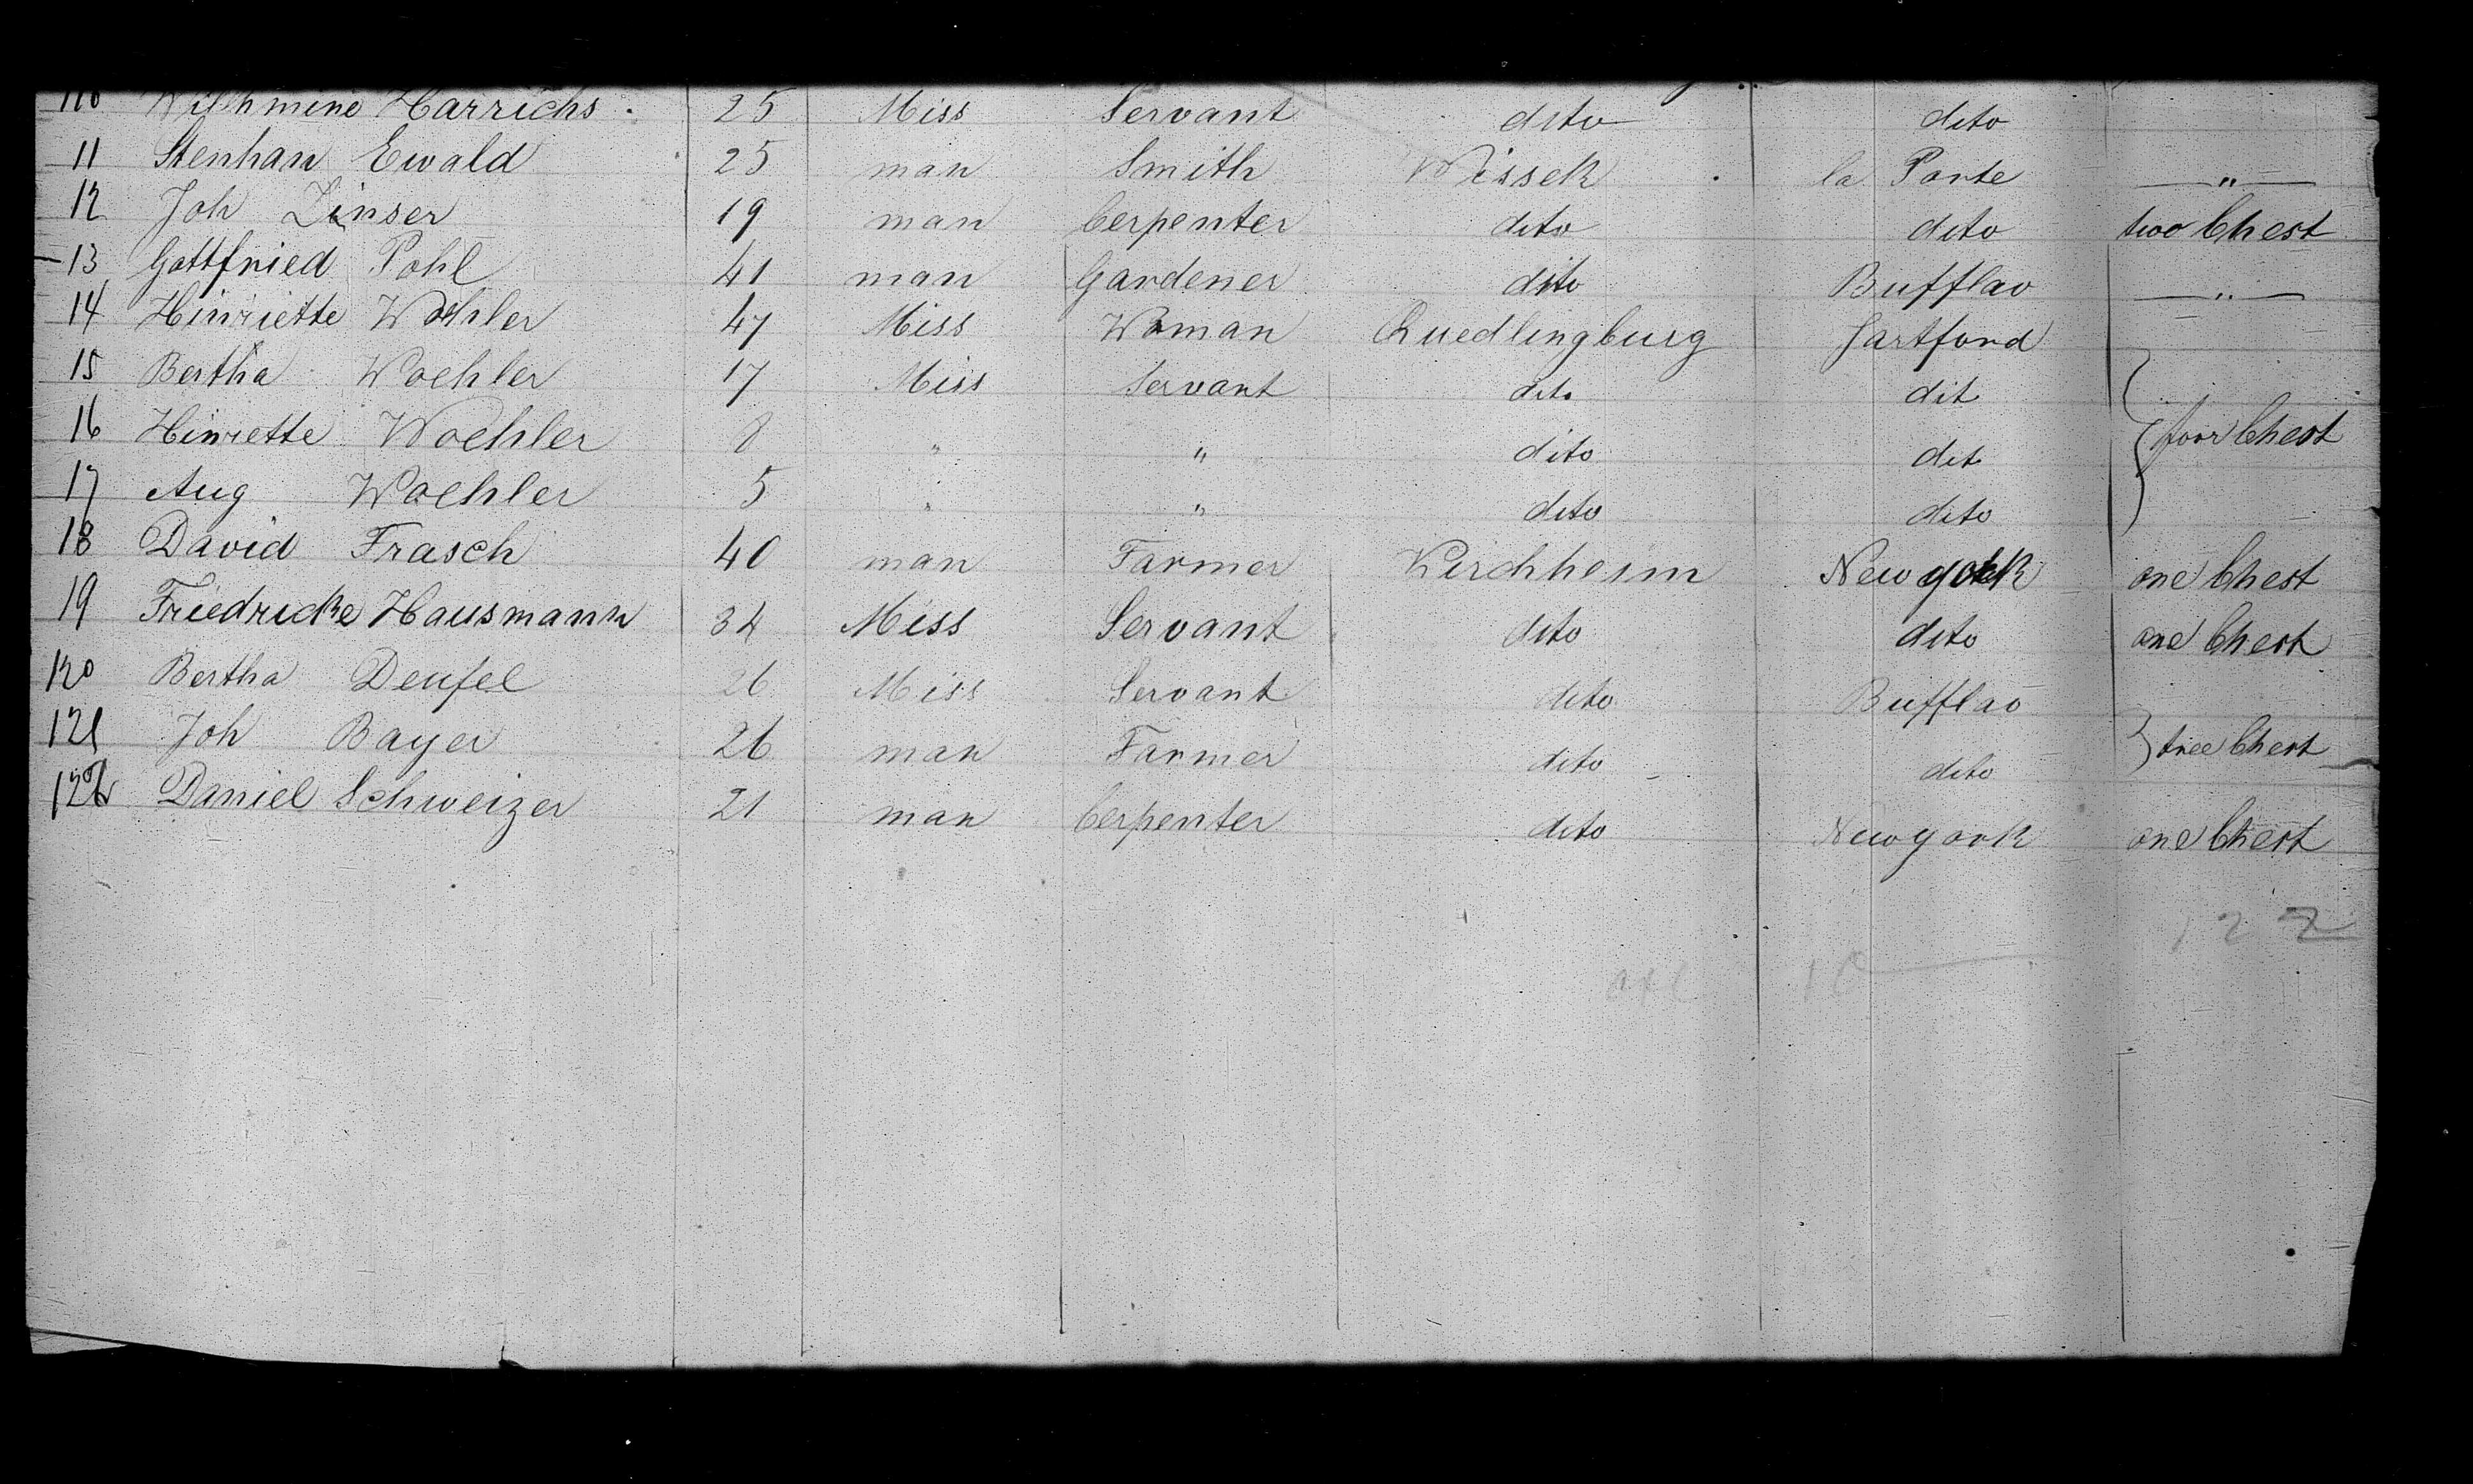 110 Wilhmine Harrichs 25 Miss Servant dito dito
11 Stenhan Ewald 25 man Smith Wissek la Porte — " —
12 Joh Zinser 19 man Cerpenter dito dito two Chest
13 Gottfried Pohl 41 man Gardener dito Bufflao — " —
14 Hinriette Wöhler 47 Miss Woman Quedlingburg Hartford
15 Bertha Woehler 17 Miss Servant dito dit
16 Hinriette Woehler 8 " " dito dit four Chest
17 Aug Woehler 5 " " dito dito
18 David Frasch 40 man Farmer Kirchheim New york one Chest
19 Friedricke Hausmann 34 Miss Servant dito dito one Chest
120 Bertha Deufel 26 Miss Servant dito Bufflao
121 Joh Bayer 26 man Farmer dito dito tree Chest
122 Daniel Schweizer 21 man Cerpenter dito New york one Chest
122